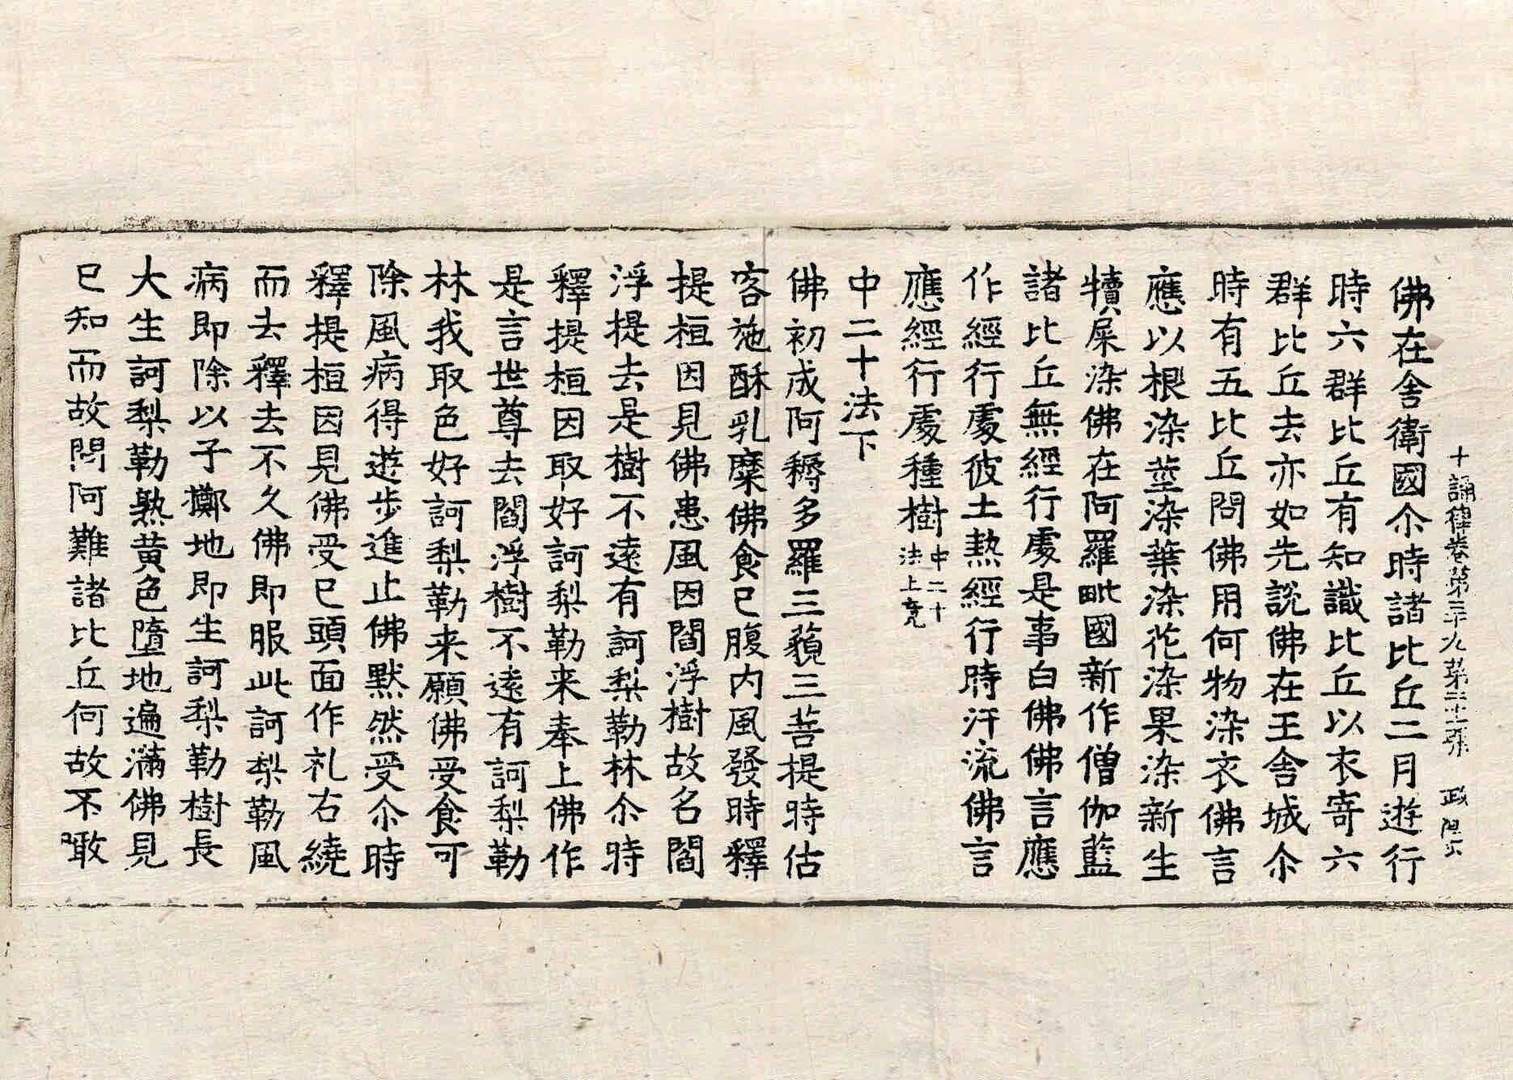 十誦律卷第三十九第二十二張 政
佛在舍衛國尒時諸比丘二月遊行
時六群比丘有知識比丘以衣寄六
群比丘去亦如先說佛在王舍城尒
時有五比丘問佛用何物染衣佛言
應以根染莖染葉染花染果染新生
犢屎染佛在阿羅毗國新作僧伽藍
諸比丘無經行處是事白佛佛言應
作經行處彼土熱經行時汗流佛言
應經行處種樹中二十法上竟
中二十法下
佛初成阿耨多羅三藐三菩提時估
客施酥乳糜佛食已腹内風發時釋
提桓因見佛患風因閻浮樹故名閻
浮提去是樹不遠有訶梨勒林尒時
釋提桓因取好訶梨勒来奉上佛作
是言世尊去閻浮樹不遠有訶梨勒
林我取色好訶梨勒来願佛受食可
除風病得遊步進止佛默然受尒時
釋提桓因見佛受已頭面作礼右繞
而去釋去不久佛即服此訶梨勒風
病即除以子擲地即生訶梨勒樹長
大生訶梨勒熟黄色墮地遍滿佛見
已知而故問阿難諸比丘何故不敢